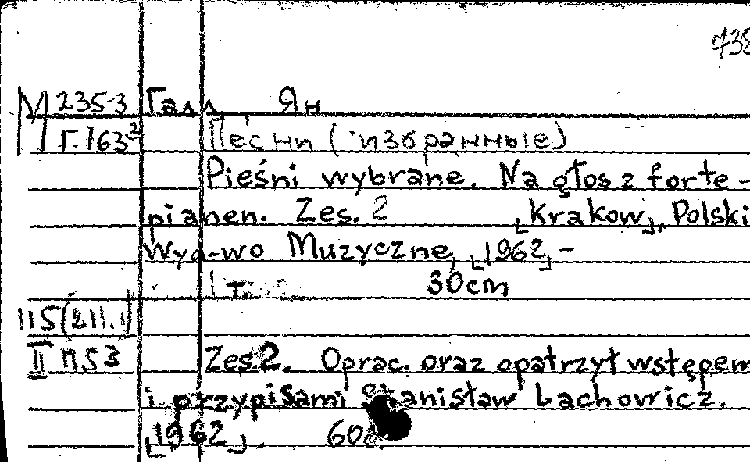 M 235-3 Галл Ян
Г.1632 Песни (избранные)
Pieśni wybrane. Na głos z forte-
pianen. Zes. 2 [Krakow], Polski
Wyd-wo Muzyczne, [1962] -
30cm
II п.53 Zes 2. Oprac. oraz opatrzył wstępem
i przypisami Stanisław Lachowicz.
[1962]